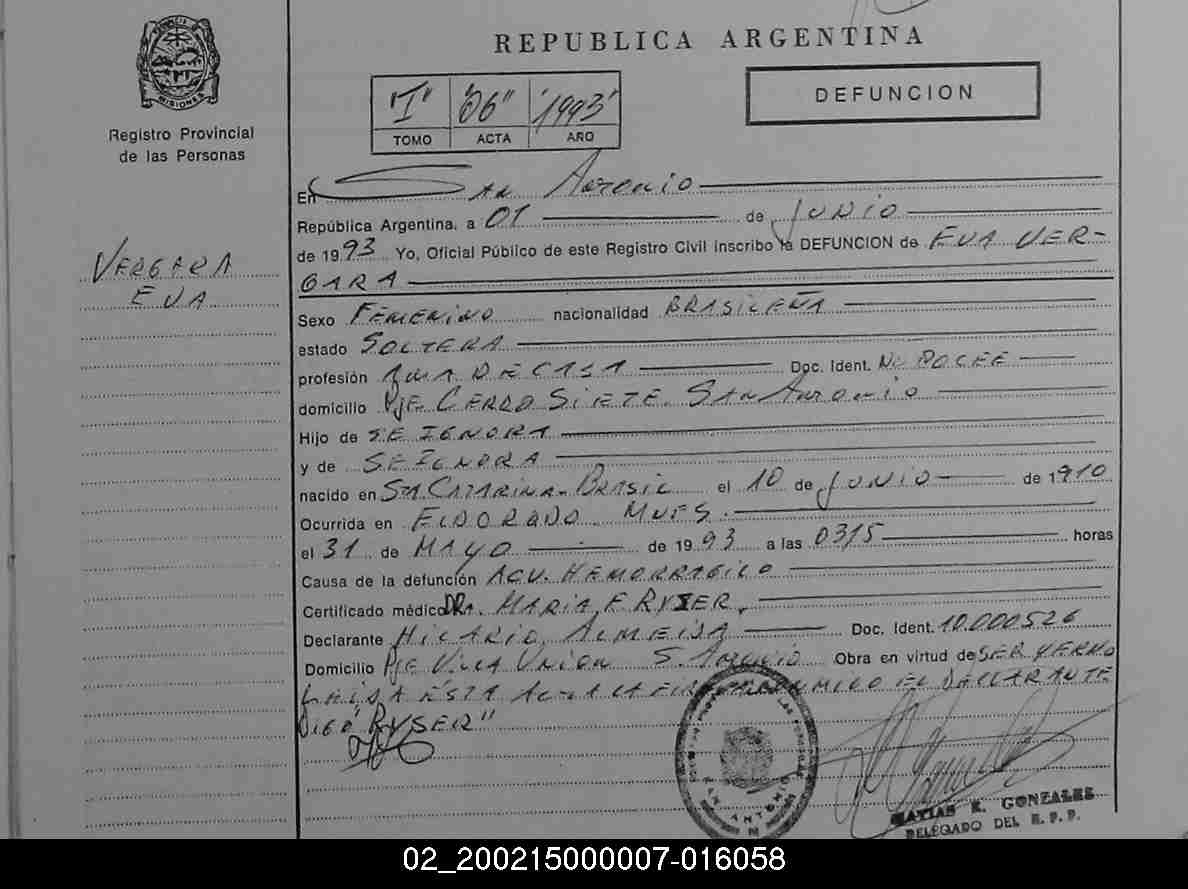 REPUBLICA ARGENTINA
MISIONES
Registro Provincial
de las Personas
"I" "06" "1993"
TOMO ACTA AÑO
DEFUNCION
VERGARA
EVA
En SAN ANTONIO
República Argentina, a 01 de JUNIO
de 1993 Yo, Oficial Público de este Registro Civil inscribo la DEFUNCION de EVA VER-
GARA
Sexo FEMENINO nacionalidad BRASILEÑA
estado SOLTERA
profesión AMA DE CASA Doc. Ident. NO POCEE
domicilio Pje CERRO SIETE SAN ANTONIO
Hijo de SE IGNORA
y de SE IGNORA
nacido en STA CATARINA - BRASIL el 10 de JUNIO de 1910
Ocurrida en ELDORADO MNES.
el 31 de MAYO de 1993 a las 0315 horas
Causa de la defunción ACV. HEMORRAGICO
Certificado médico DRA. MARIA F. RYSER.
Declarante HILARIO ALMEIDA Doc. Ident. 10.000.526
Domicilio Pje VILLA UNION S. ANTONIO Obra en virtud de SER YERNO
LEIDA ESTA ACTA LA FIRMA CONMIGO EL DECLARANTE
DIGO "RYSER"
SAN ANTONIO
MATIAS E. GONZALES
DELEGADO DEL R. P. P.
02_200215000007-016058